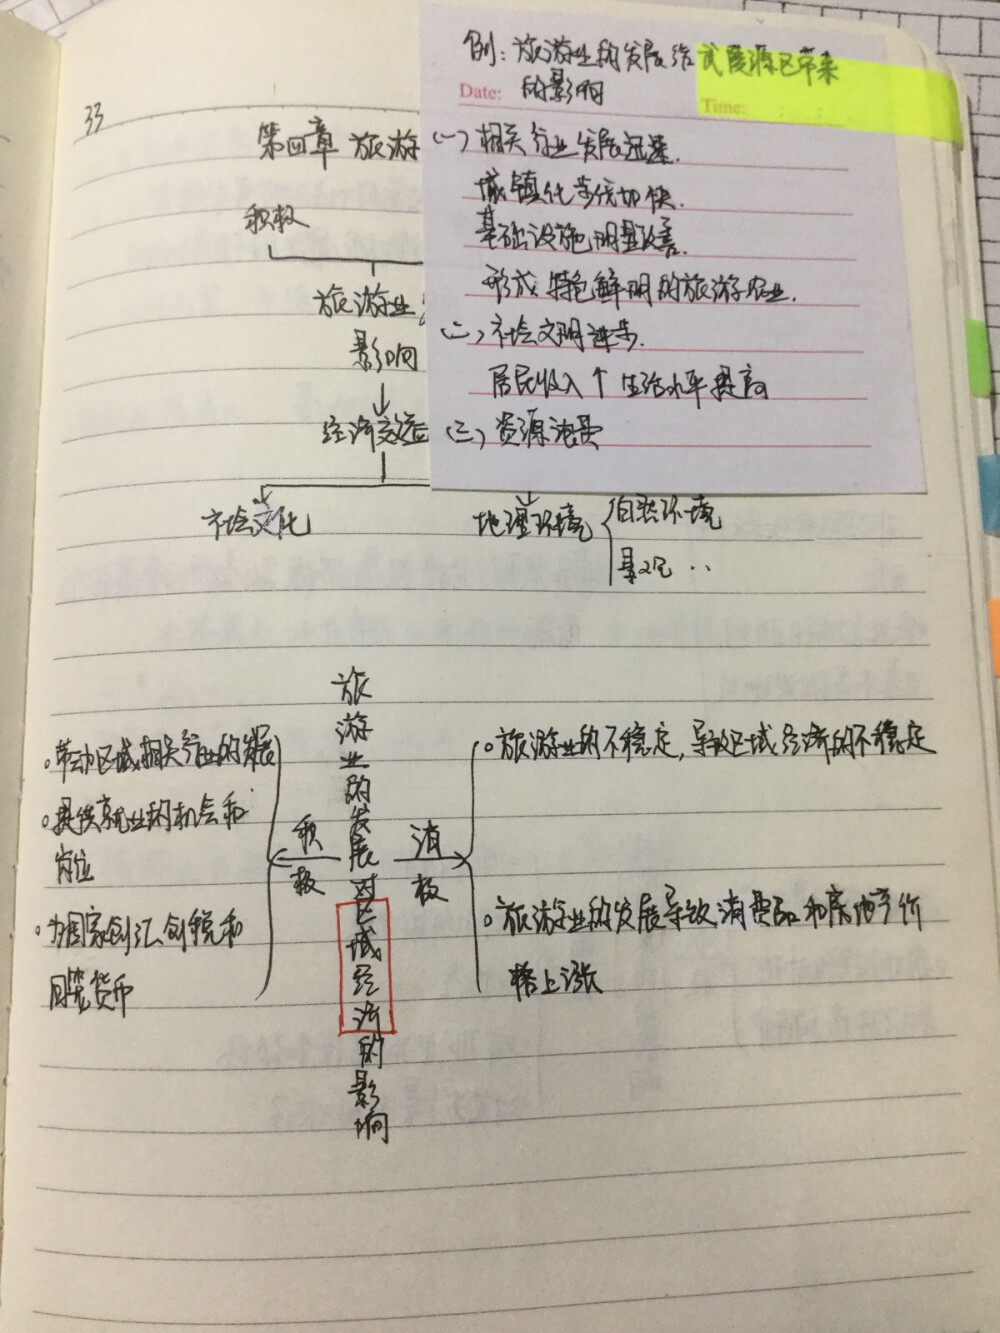 33
第四章 旅游
积极
旅游业
影响
经济效益
社会文化
地理环境
自然环境
景观 ··
例：旅游业的发展给武陵源区带来
Date: 的影响
Time:
(一) 相关行业发展迅速.
城镇化步伐加快.
基础设施明显改善.
形成特色鲜明的旅游农业.
(二) 社会文明进步.
居民收入↑ 生活水平提高
(三) 资源浪费
旅游业的发展对区域经济的影响
积极
。带动区域相关行业的发展
。提供就业的机会和
岗位
。为国家创汇创税和
回笼货币
消极
。旅游业的不稳定,导致区域经济的不稳定
。旅游业的发展导致消费品和房地产价
格上涨